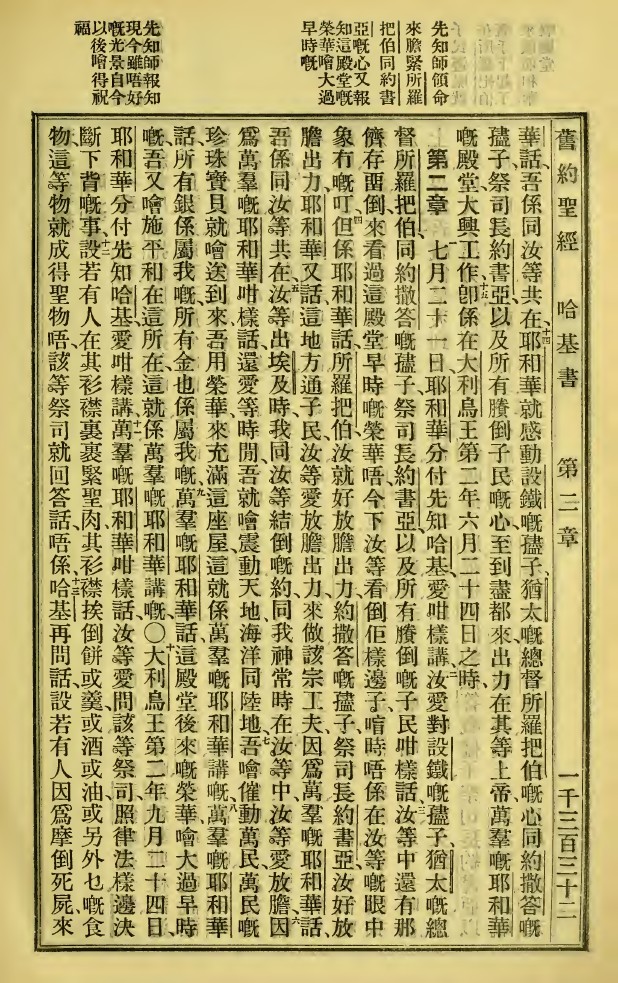 舊約聖經 哈基書 第二章 一千三百三十二
先知師領命
來膽緊所羅
把伯同約書
亞嘅心又報
知這殿堂嘅
榮華噲大過
早時嘅
先知師報知
現今雖唔好
嘅光景自今
以後噲得祝
福
華話、吾係同汝等共在、十四耶和華就感動設鐵嘅㜽子、猶太嘅總督所羅把伯嘅心、同約撒答嘅
㜽子、祭司長約書亞、以及所有賸倒子民嘅心、至到盡都來出力、在其等上帝萬羣嘅耶和華
嘅殿堂大興工作、十五卽係在大利烏王第二年六月二十四日之時、
第二章 一七月二十一日、耶和華分付先知哈基、愛咁樣講、二汝愛對設鐵嘅㜽子、猶太嘅總
督所羅把伯、同約撒答嘅㜽子、祭司長約書亞、以及所有賸倒嘅子民咁樣話、三汝等中還有那
儕存留倒、來看過這殿堂早時嘅榮華唔、今下汝等看倒佢樣邊子、喑時唔係在汝等嘅眼中
象冇嘅叮、四但係耶和華話、所羅把伯、汝就好放膽出力、約撒答嘅㜽子、祭司長約書亞、汝好放
膽出力、耶和華又話、這地方通子民、汝等愛放膽出力、來做該宗工夫、因爲萬羣嘅耶和華話、
吾係同汝等共在、五汝等出埃及時、我同汝等結倒嘅約、同我神常時在汝等中、汝等愛放膽、六因
爲萬羣嘅耶和華咁樣話、還愛等時閒、吾就噲震動天地海洋同陸地、七吾噲催動萬民、萬民嘅
珍珠寶貝就噲送到來、吾用榮華來充滿這座屋、這就係萬羣嘅耶和華講嘅、八萬羣嘅耶和華
話、所有銀係屬我嘅、所有金也係屬我嘅、九萬羣嘅耶和華話、這殿堂後來嘅榮華、噲大過早時
嘅、吾又噲施平和在這所在、這就係萬羣嘅耶和華講嘅、〇十大利烏王第二年九月二十四日、
耶和華分付先知哈基、愛咁樣講、十一萬羣嘅耶和華咁樣話、汝等愛問該等祭司、照律法樣邊決
斷下背嘅事、十二設若有人在其衫襟裏裹緊聖肉、其衫襟挨倒餅、或羹、或酒、或油、或另外乜嘅食
物、這等物就成得聖物唔、該等祭司就回答話、唔係、十三哈基再問話、設若有人因爲摩倒死屍來